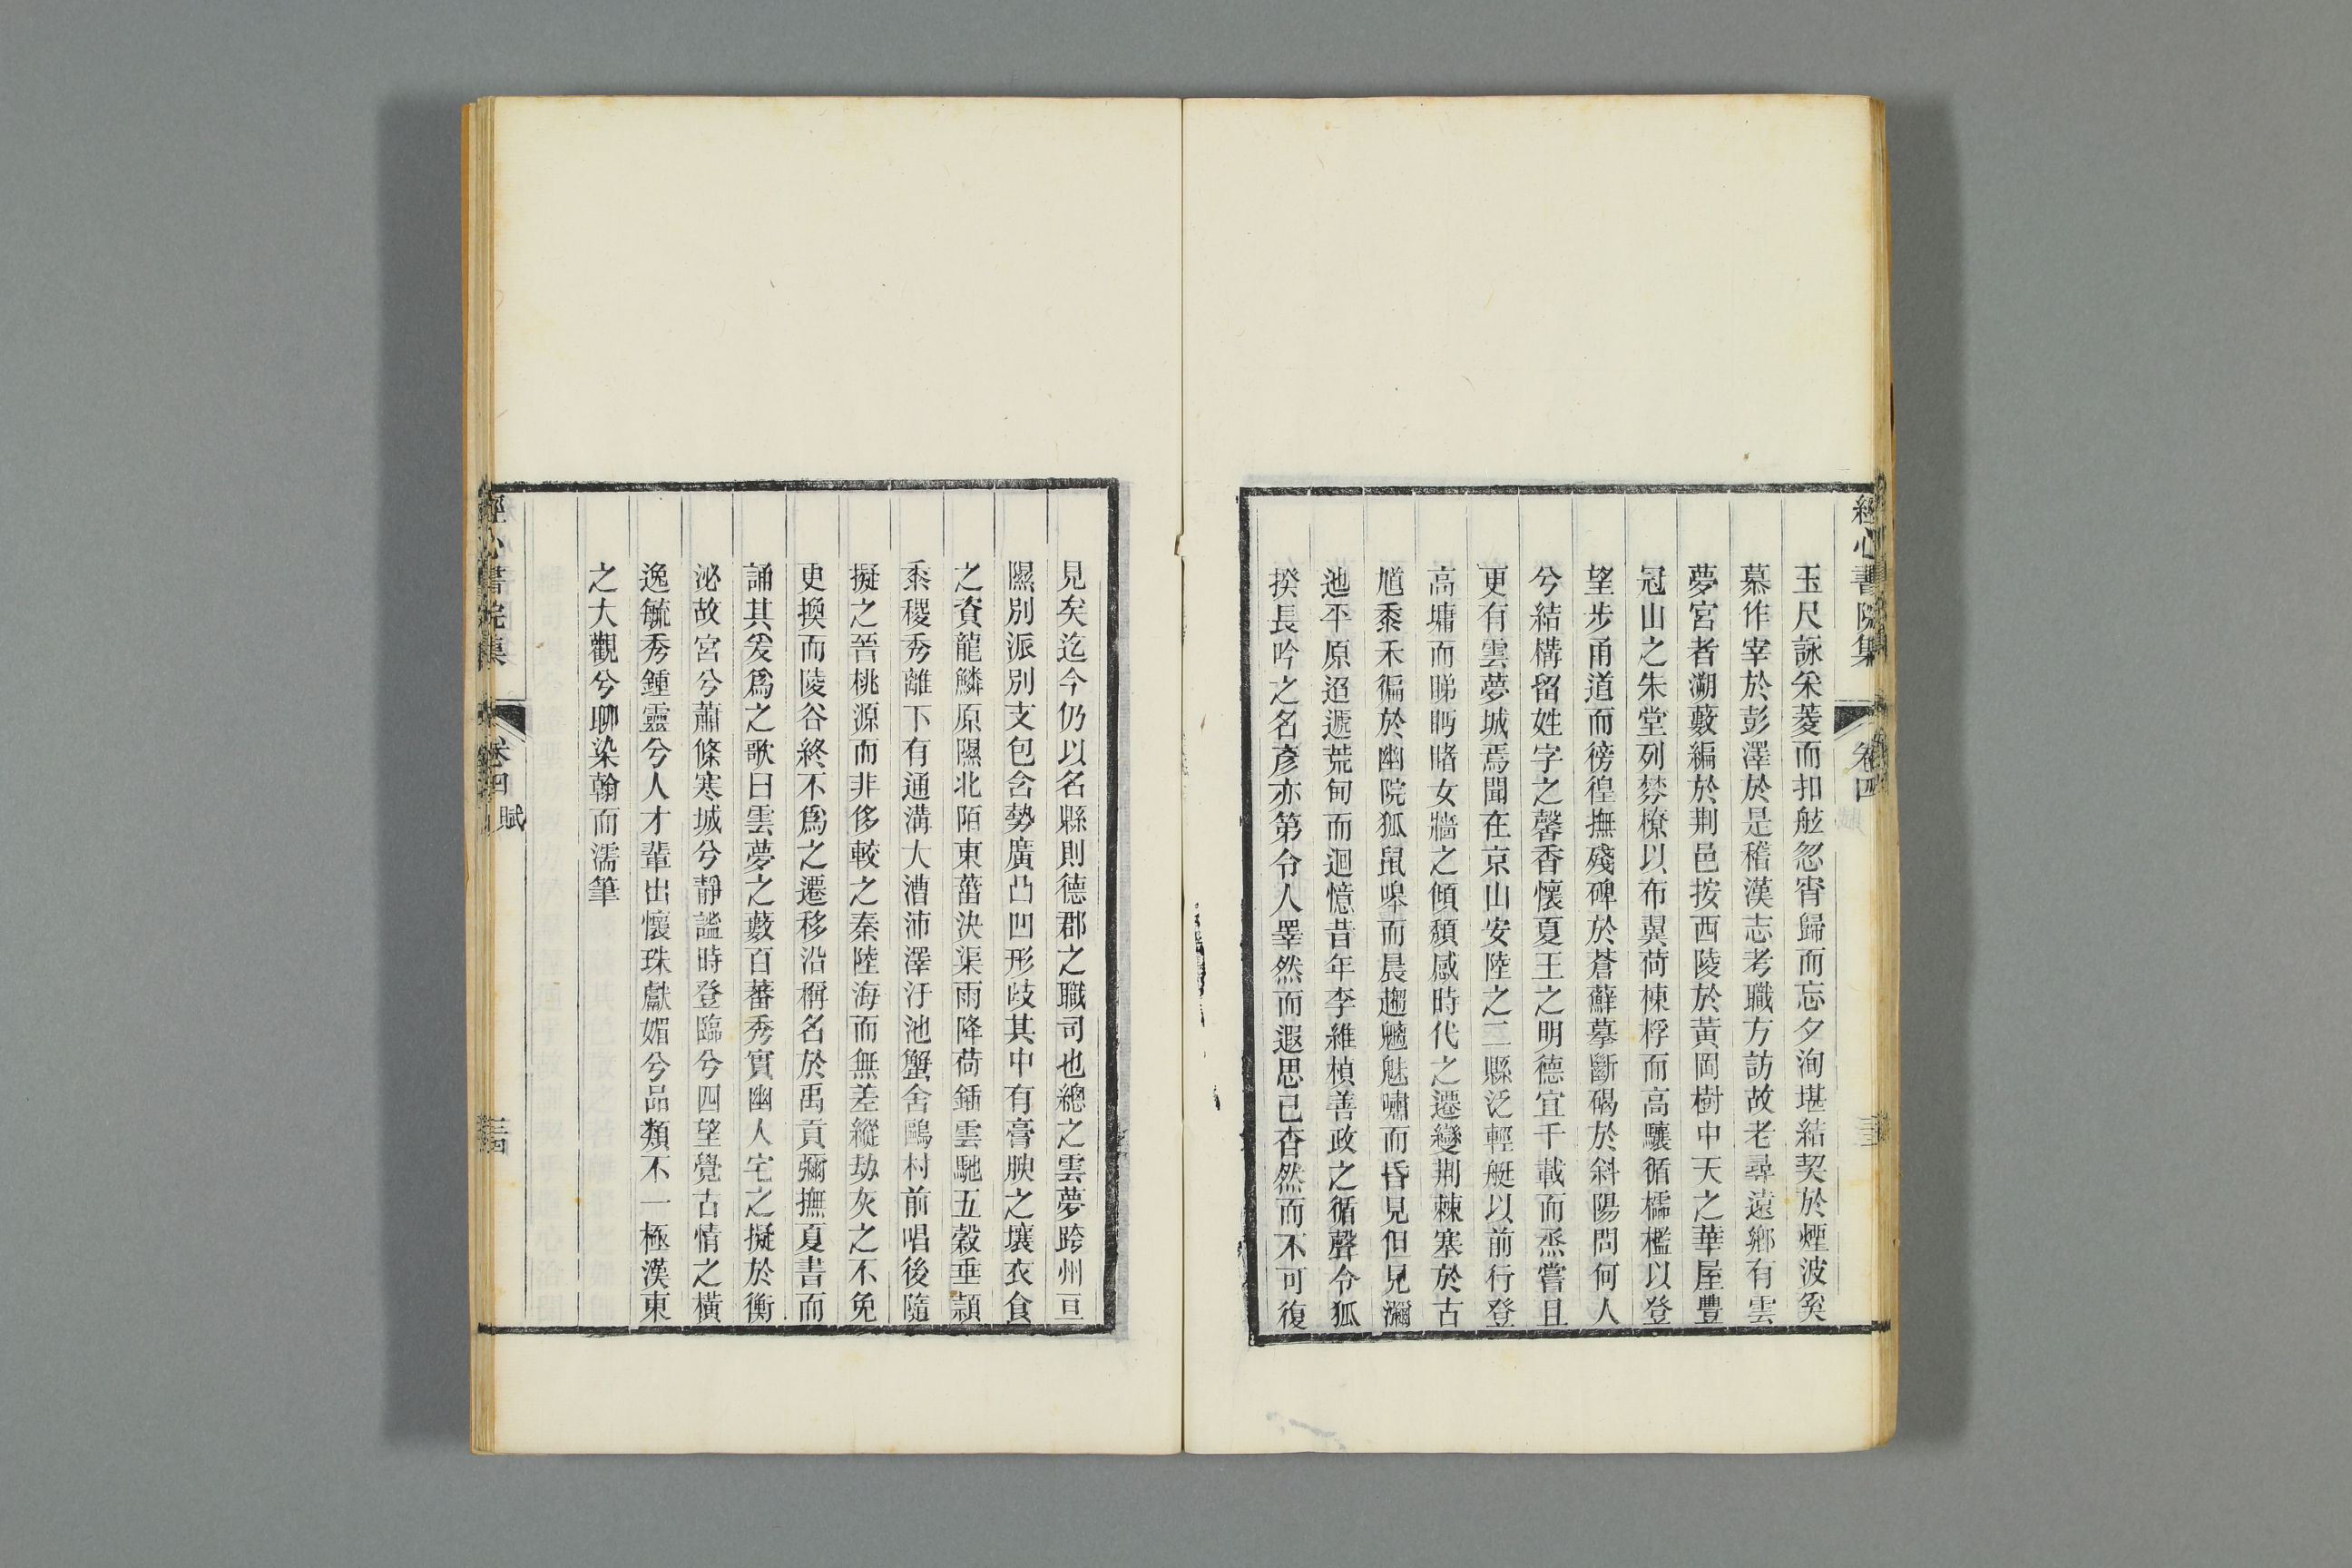 經心書院集
卷四
玉尺詠采菱而扣舷忽宵歸而忘夕洵堪結契於煙波奚
慕作宰於彭澤於是稽漢志考職方訪故老尋遠鄉有雲
夢宮者溯藪編於荆邑按西陵於黃岡樹中天之華屋豐
冠山之朱堂列棼橑以布翼荷棟桴而高驤循櫺檻以登
望步甬道而徬徨撫殘碑於蒼蘚摹斷碣於斜陽問何人
兮結構留姓字之馨香懷夏王之明德宜千載而烝嘗且
更有雲夢城焉聞在京山安陸之二縣泛輕艇以前行登
高墉而睇眄睹女牆之傾頹感時代之遷變荆棘塞於古
馗黍禾徧於幽院狐鼠嘷而晨趨魑魅嘯而昏見但見瀰
池平原迢遞荒甸而迴憶昔年李維楨善政之循聲令狐
揆長吟之名彥亦第令人睪然而遐思已杳然而不可復
見矣迄今仍以名縣則德郡之職司也總之雲夢跨州亘
隰別派別支包含勢廣凸凹形歧其中有膏腴之壤衣食
之資龍鱗原隰北陌東菑決渠雨降荷鍤雲馳五穀垂穎
黍稷秀離下有通溝大漕沛澤汙池蟹舍鷗村前唱後隨
擬之晉桃源而非侈較之秦陸海而無差縱劫灰之不免
更換而陵谷終不爲之遷移沿稱名於禹貢彌撫夏書而
誦其爰爲之歌曰雲夢之藪百蕃秀實幽人宅之擬於衡
泌故宮兮蕭條寒城兮靜謐時登臨兮四望覺古情之橫
逸毓秀鍾靈兮人才輩出懷珠獻媚兮品類不一極漢東
之大觀兮聊染翰而濡筆
經心書院集
卷四
賦